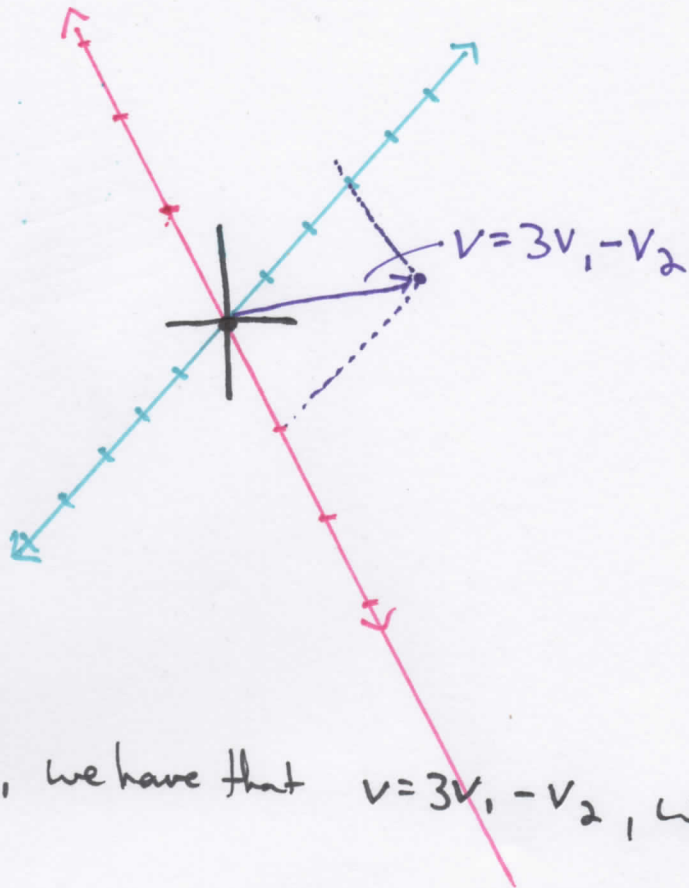 v=3v₁-v₂
, we have that v=3v₁-v₂,